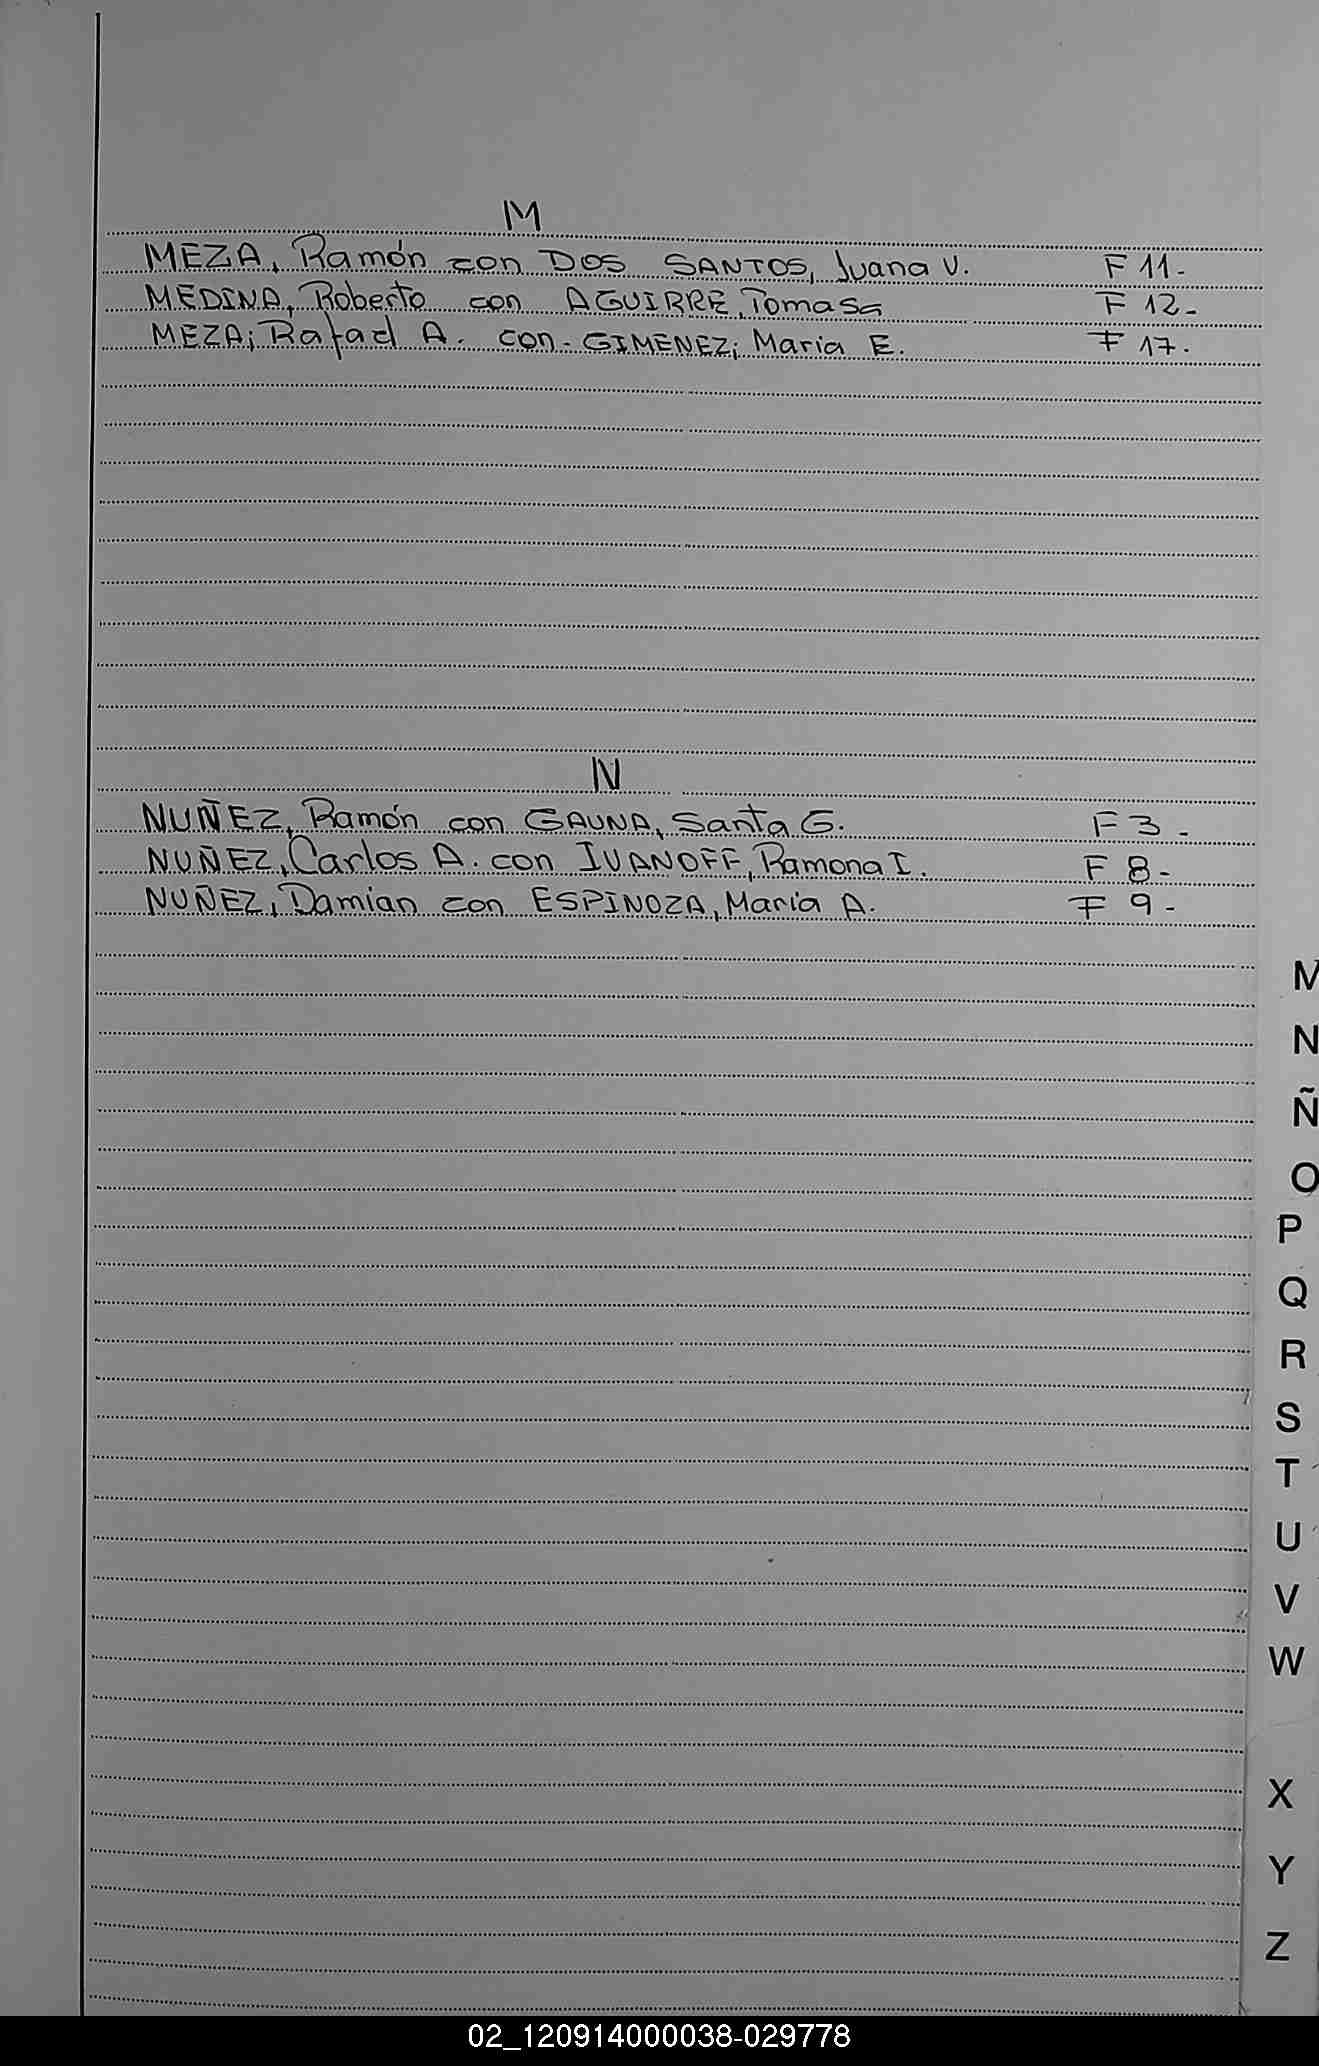 M
MEZA, Ramón con DOS SANTOS, Juana V. F 11-
MEDINA, Roberto con AGUIRRE, Tomasa F 12-
MEZA; Rafael A. con - GIMENEZ; Maria E. F 17.
N
NUÑEZ, Ramón con GAUNA, Santa G. F 3-
NUÑEZ, Carlos A. con IVANOFF, Ramona I. F 8-
NUÑEZ, Damian con ESPINOZA, Maria A. F 9-
M
N
Ñ
O
P
Q
R
S
T
U
V
W
X
Y
Z
02_120914000038-029778